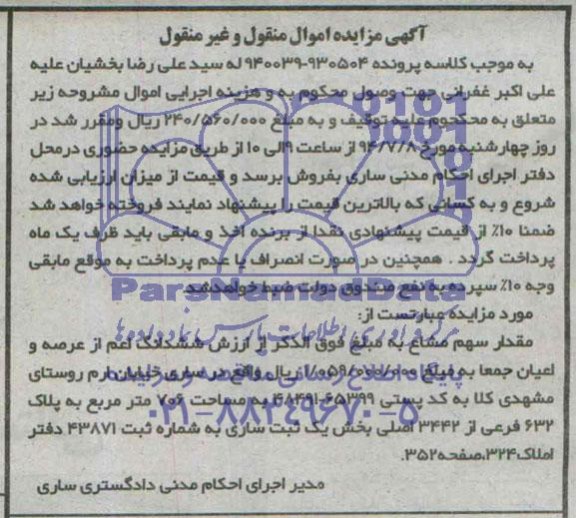 آگهی مزایده اموال منقول و غیر منقول
به موجب کلاسه پرونده ۹۳۰۵۰۴-۹۴۰۰۳۹ له سید علی رضا بخشیان علیه
علی اکبر غفرانی جهت وصول محکوم به و هزینه اجرایی اموال مشروحه زیر
متعلق به محکحوم علیه توقیف و به مبلغ ۲۴۰/۵۶۰/۰۰۰ ریال ومقرر شد در
روز چهارشنبه مورخ ۹۴/۷/۸ از ساعت ۹الی ۱۰ از طریق مزایده حضوری درمحل
دفتر اجرای احکام مدنی ساری بفروش برسد و قیمت از میزان ارزیابی شده
شروع و به کسانی که بالاترین قیمت را پیشنهاد نمایند فروخته خواهد شد
ضمنا ۱۰٪ از قیمت پیشنهادی نقدا از برنده اخذ و مابقی باید ظرف یک ماه
پرداخت گردد . همچنین در صورت انصراف یا عدم پرداخت به موقع مابقی
وجه ۱۰٪ سپرده به نفع صندوق دولت ضبط خواهدشد
ParsNamadData
مورد مزایده عبارتست از:
مقدار سهم مشاع به مبلغ فوق الذکر از ارزش ششدانگ اعم از عرصه و
اعیان جمعا به مبلغ ریال واقع در ساری خیابان ارم روستای
پایگاه اطلاع رسانی مناقصه و مزایده
مشهدی کلا به کد پستی ۶۵۳۹۹-۴۸۴۹۱ به مساحت ۷۰۶ متر مربع به پلاک
۰۲۱-۸۸۳۴۹۶۷۰-۵
۶۳۲ فرعی از ۳۴۴۲ اصلی بخش یک ثبت ساری به شماره ثبت ۴۳۸۷۱ دفتر
املاک۳۲۴،صفحه۳۵۲.
مدیر اجرای احکام مدنی دادگستری ساری